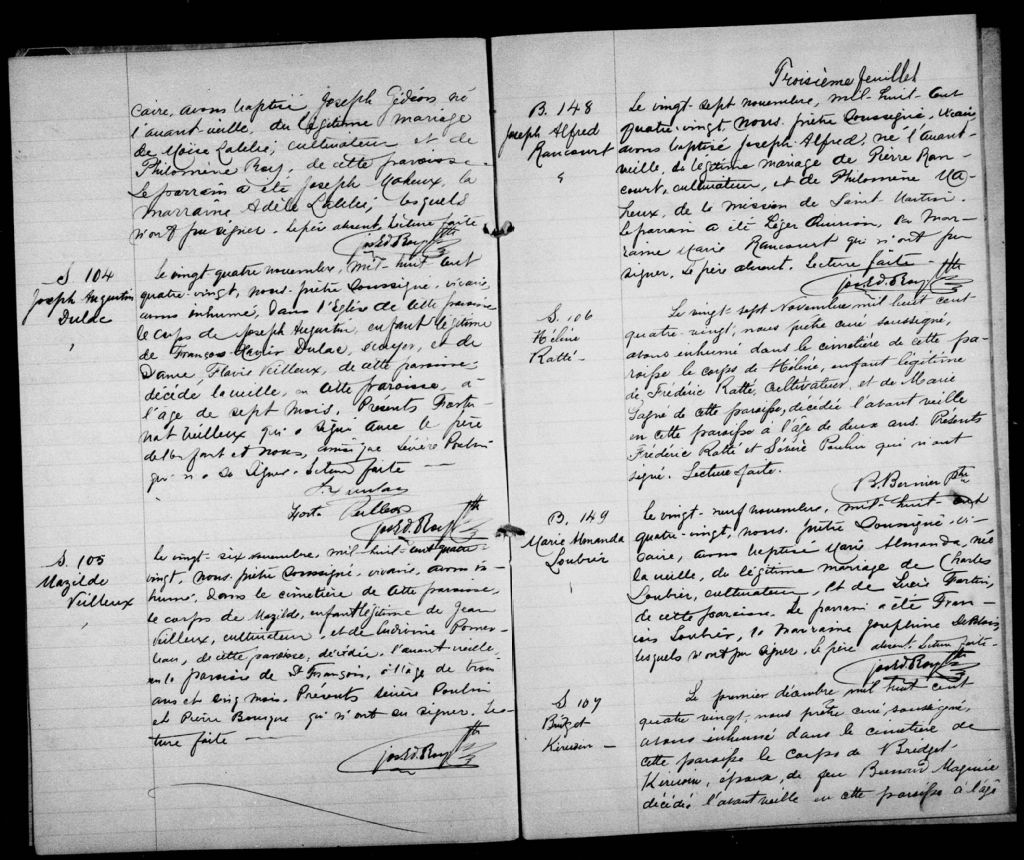 caire, avons baptisé Joseph Gédéon né
l'avant-veille, du légitime mariage
de Moïse Labbé, cultivateur et de
Philomène Roy, de cette paroisse.
Le parrain a été Joseph Maheux, la
marraine Adèle Labbé, lesquels
n'ont pu signer. Le père absent. Lecture faite
Jos Ed. Roy Ptre
S 104
Joseph Augustin
Dulac
Le vingt quatre novembre, mil-huit-cent
quatre-vingt, nous, prêtre soussigné, vicaire,
avons inhumé, dans l'Eglise de cette paroisse
le corps de Joseph Augustin, enfant légitime
de François-Xavier Dulac, écuyer, et de
Dame, Flavie Veilleux, de cette paroisse
décédé la veille, en cette paroisse, à
l'âge de sept mois. Présents Fortu-
nat Veilleux qui a signé avec le père
de l'enfant et nous, ainsi que Sévère Poulin
qui n'a su signer. Lecture faite —
Fort. Veilleux
Jos Ed. Roy Ptre
S. 105
Mazilde
Veilleux
Le vingt-six novembre, mil-huit-cent quatre-
vingt, nous, prêtre soussigné, vicaire, avons in-
humé, dans le cimetière de cette paroisse,
le corps de Mazilde, enfant légitime de Jean
Veilleux, cultivateur, et de Ludivine Pomer-
leau, de cette paroisse, décédée l'avant veille,
en la paroisse de St François, à l'âge de trois
ans et cinq mois. Présents Sévère Poulin
et Pierre Bougue qui n'ont su signer. Lec-
ture faite —
Jos Ed. Roy Ptre
Troisième feuillet
B. 148
Joseph Alfred
Rancourt
Le vingt-sept novembre, mil-huit-cent
quatre-vingt, nous, prêtre soussigné, vicaire,
avons baptisé Joseph-Alfred, né l'avant-
veille, du légitime mariage de Pierre Ran-
court, cultivateur, et de Philomène Ma-
heux, de la mission de Saint-Martin.
Le parrain a été Léger la mar-
raine Marie Rancourt qui n'ont pu
signer, le père absent. Lecture faite —
Jos Ed. Roy Ptre
S. 106
Hélène
Ratté —
Le vingt sept Novembre mil huit cent
quatre-vingt, nous prêtre curé soussigné,
avons inhumé dans le cimetière de cette pa-
roisse le corps de Hélène, enfant légitime
de Frédéric Ratté, cultivateur, et de Marie
Gagné de cette paroisse, décédée l'avant veille
en cette paroisse à l'âge de deux ans. Présents
Frédéric Ratté et Sévère Poulin qui n'ont
signé. Lecture faite.
B. Bernier Ptre
B. 149
Marie Almanda
Loubier
Le vingt-neuf novembre, mil-huit-cent
quatre-vingt, nous, prêtre soussigné, vi-
caire, avons baptisé Marie Almanda, née
la veille, du légitime mariage de Charles
Loubier, cultivateur, et de Lucie Fortin,
de cette paroisse. Le parrain a été Fran-
çois Loubier, la marraine Joséphine DeBlois,
lesquels n'ont pu signer. Le père absent. Lecture faite —
Jos Ed. Roy Ptre
S 107
Bridget
Kirwin —
Le premier décembre mil huit cent
quatre vingt, nous prêtre curé, soussigné,
avons inhumé dans le cimetière de
cette paroisse le corps de Bridget
Kirwin, épouse, de feu Bernard Maguire
décédée l'avant veille en cette paroisse à l'âge